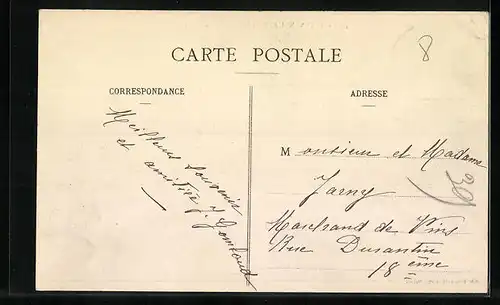 CARTE POSTALE
8
CORRESPONDANCE
ADRESSE
Meilleurs souvenir
et amitiés
Monsieur et Madame
Jarny
30
Marchand de Vins
Rue Durantin
18ème